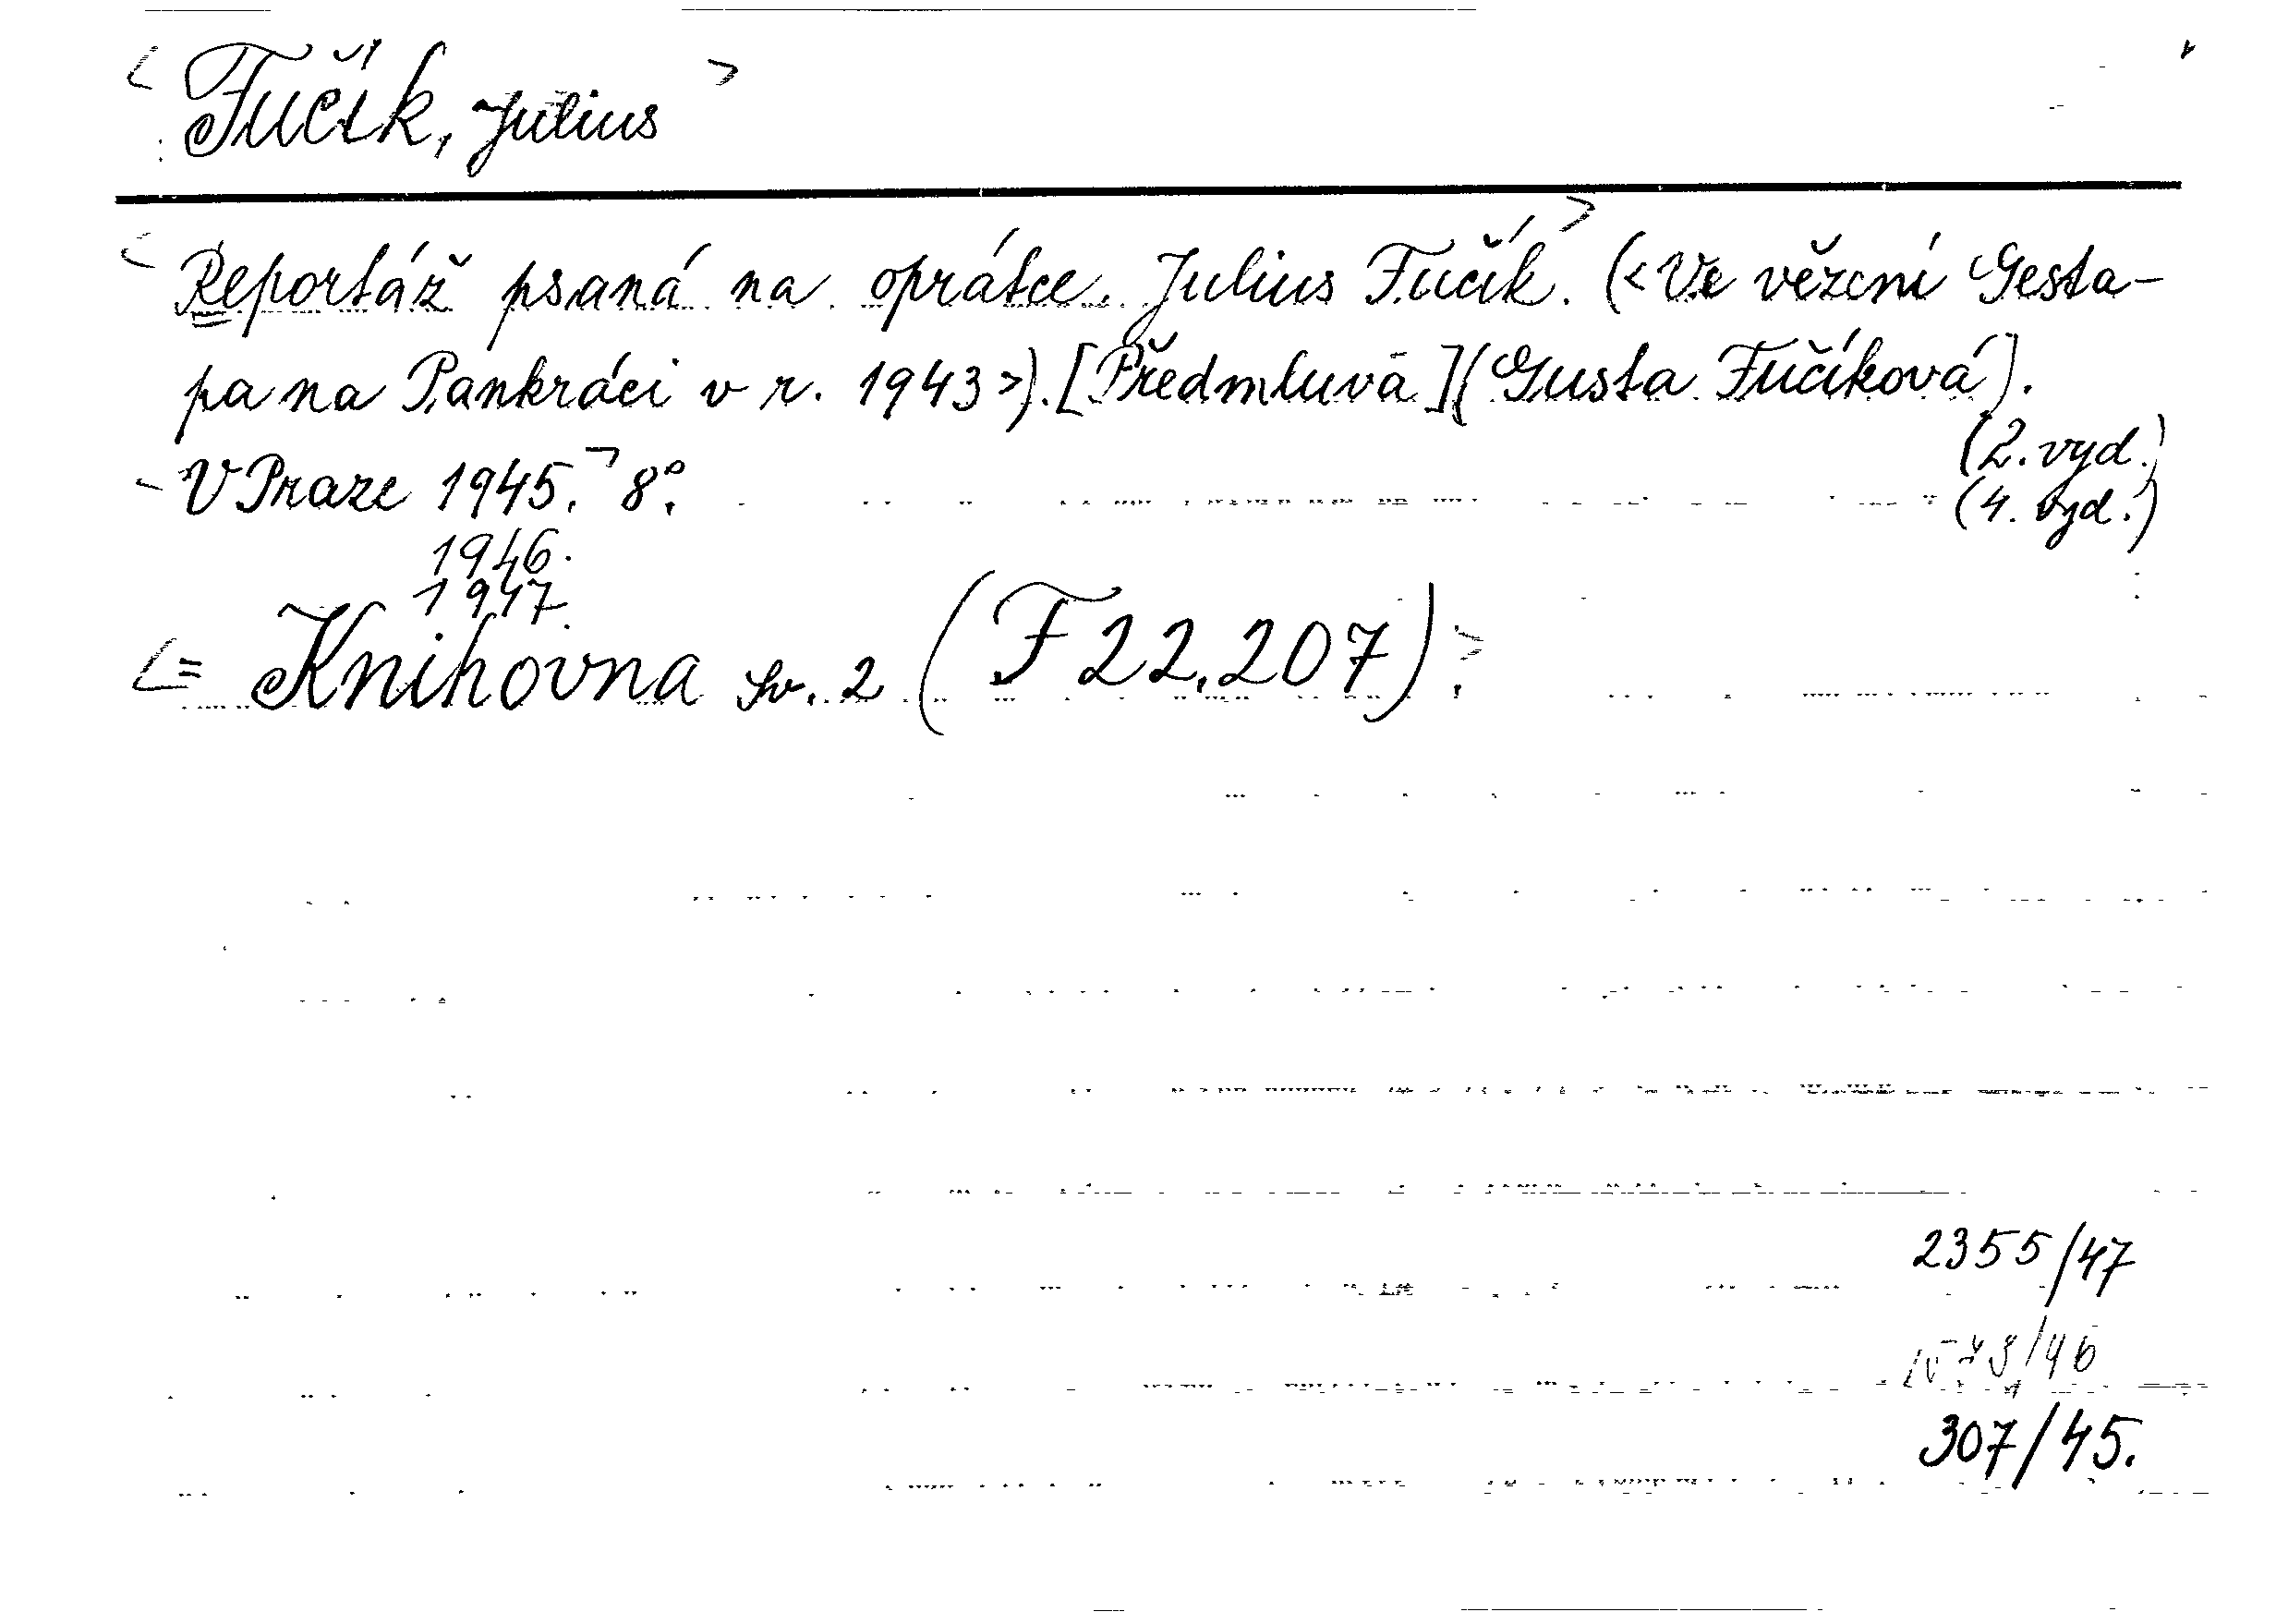 < Fučík, Julius >
< Reportáž psaná na oprátce. Julius Fučík. > (<Ve vězení Gesta-
pa na Pankráci v r. 1943>). [Předmluva] (Gusta Fučíková).
(2. vyd.)
- V Praze 1945. ¬ 8°.
(4. vyd.)
1946.
1947.
<= Knihovna sv. 2 (F 22.207)>.
2355/47
307/45.